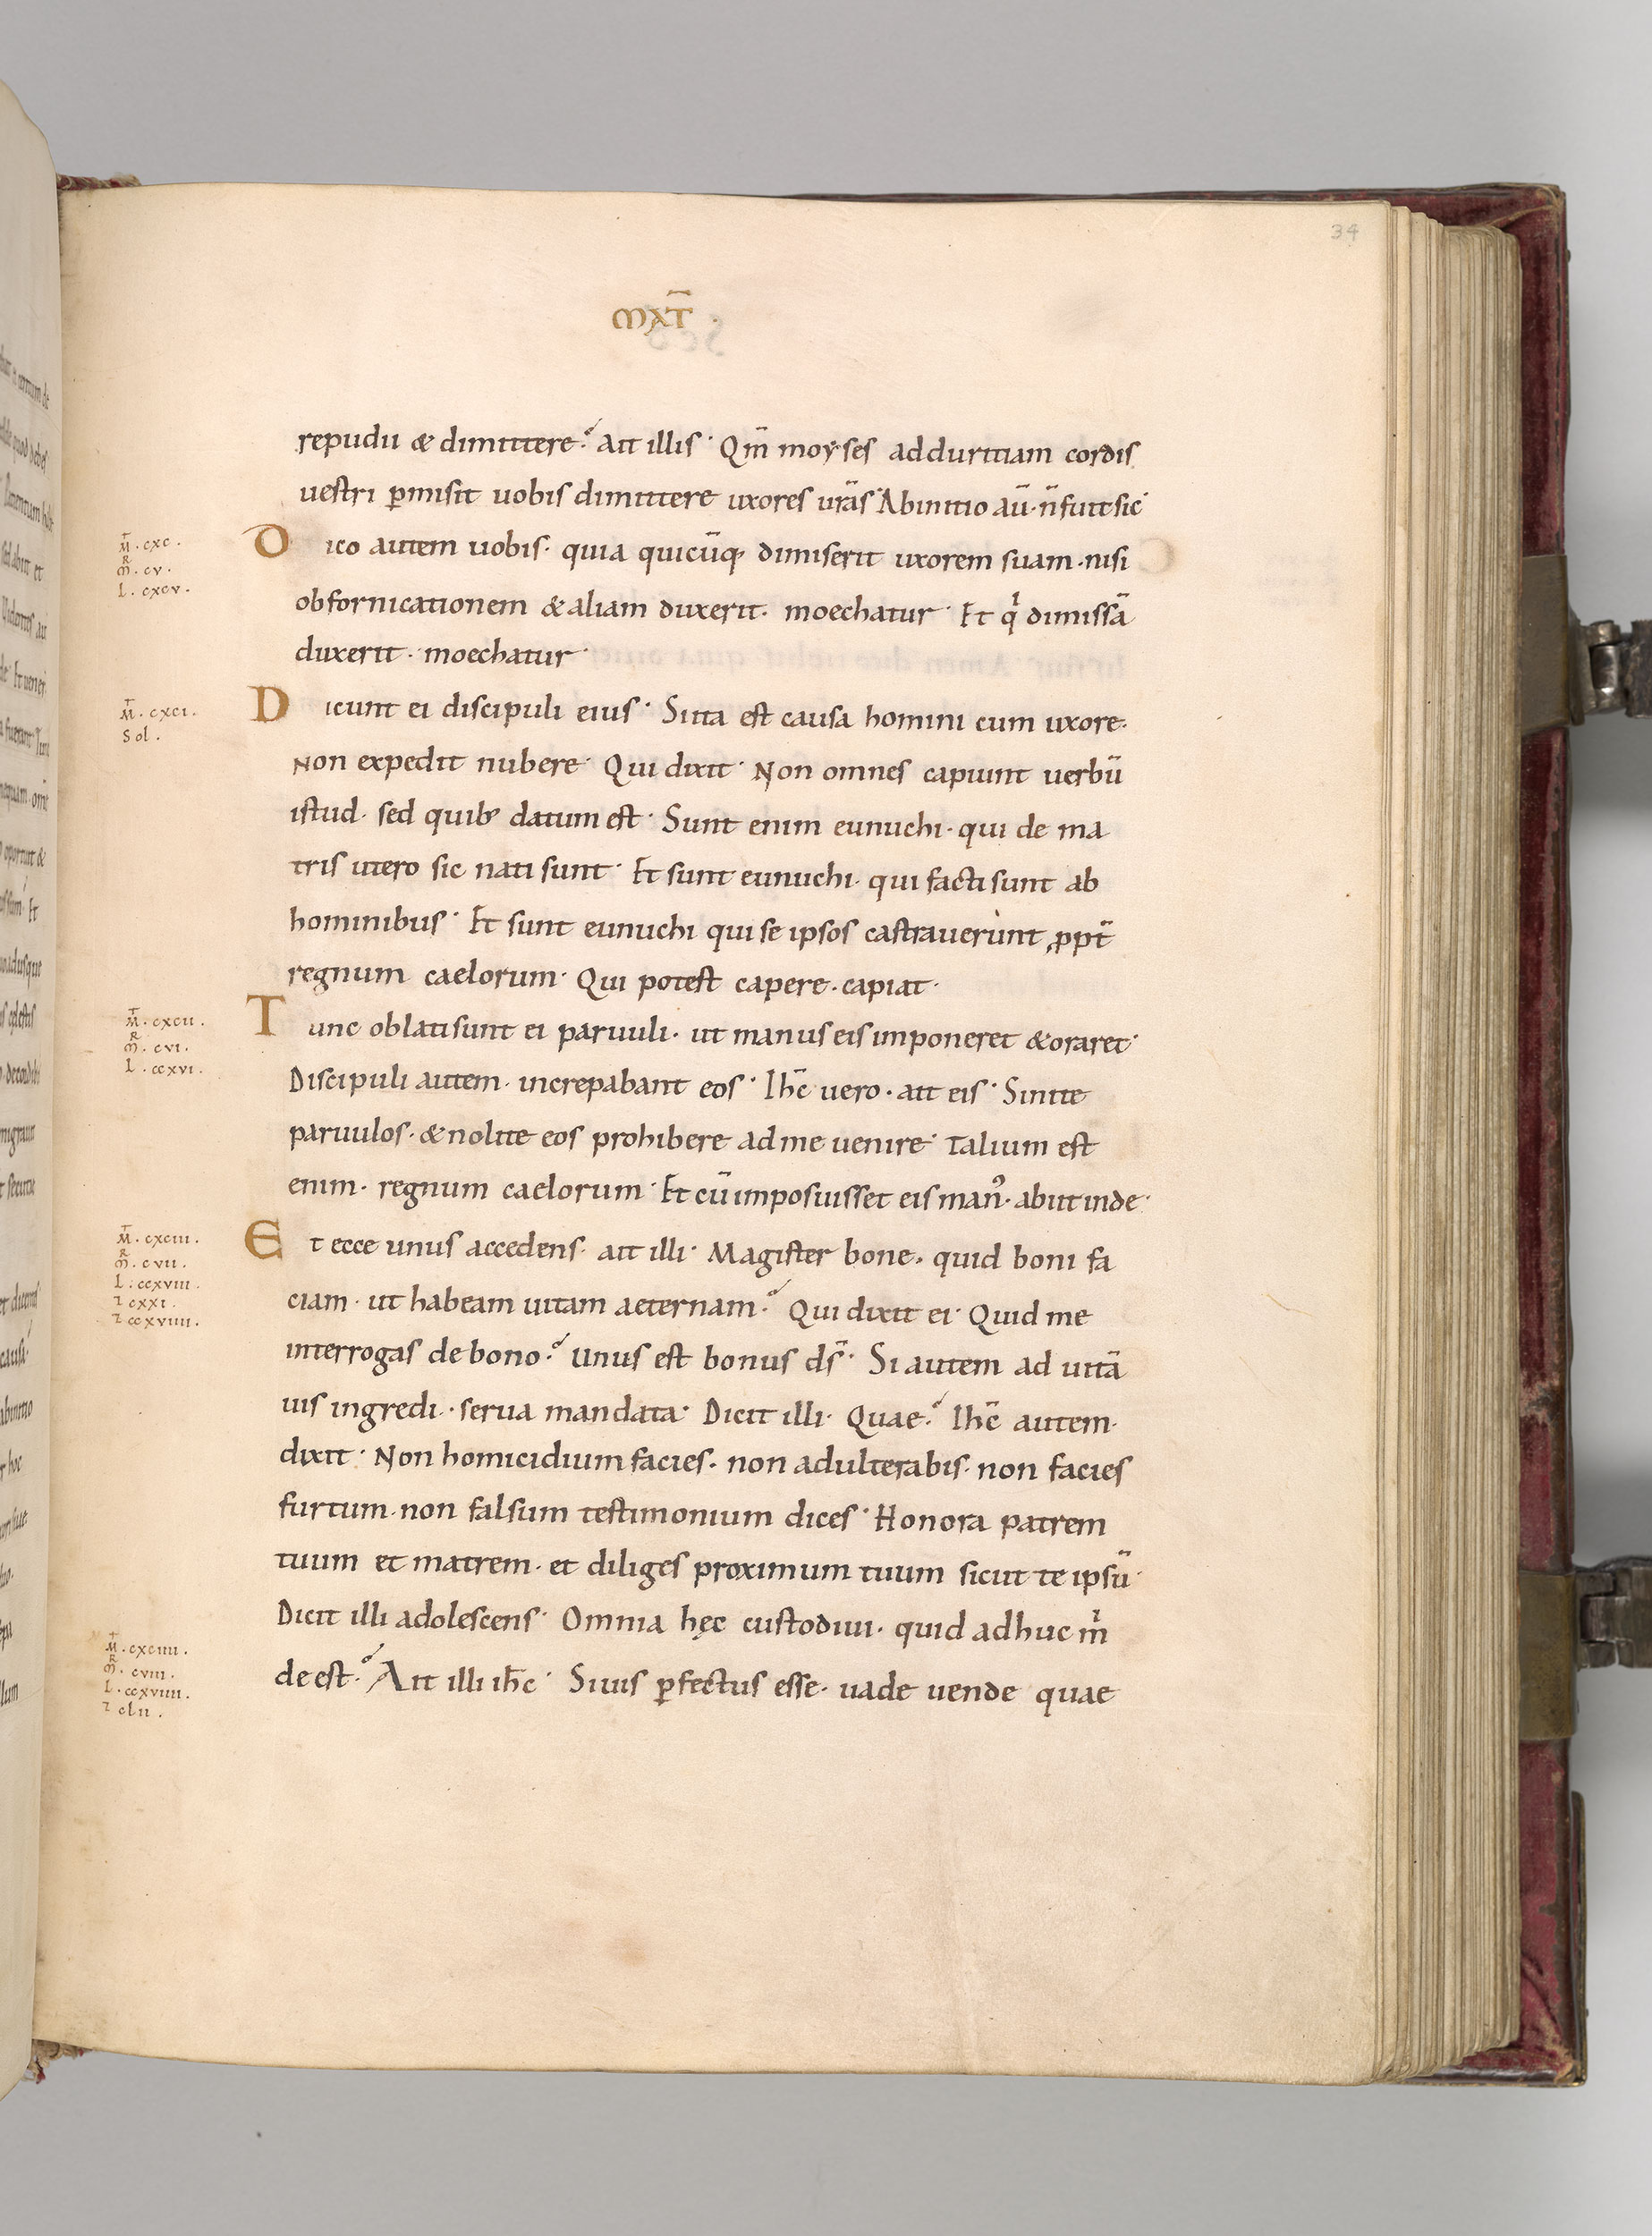 34
MAT̄ ·
repudii & dimittere? Ait illis· Qm̄ moyses adduritiam cordis
uestri p̱misit uobis dimittere uxores ur̄as· Abinitio aū· n̄ fuit sic·
M̄ · cxc ·
MR · cv ·
L · cxcv ·
Dico autem uobis· quia quicūq; dimiserit uxorem suam· nisi
obfornicationem & aliam duxerit· moechatur· Et q̇ dimissā
duxerit· moechatur·
M̄ · cxci ·
Sol ·
Dicunt ei discipuli eius· Si ita est causa homini cum uxore·
Non expedit nubere· Qui dixit· Non omnes capiunt uerbū
istud· sed quib; datum est· Sunt enim eunuchi· qui de ma
tris utero sic nati sunt· Et sunt eunuchi· qui facti sunt ab
hominibus· Et sunt eunuchi qui se ipsos castrauerunt ꝓpt̄
regnum caelorum· Qui potest capere· capiat·
M̄ · cxcii ·
MR · cvi ·
L · ccxvi ·
Tunc oblati sunt ei paruuli· ut manus eis imponeret & oraret·
Discipuli autem· increpabant eos· Ihc̄ uero· ait eis· Sinite
paruulos· & nolite eos prohibere ad me uenire· Talium est
enim· regnum caelorum· Et cū imposuisset eis man᾿· abiit inde·
M̄ · cxciii ·
MR · cvii ·
L · ccxviii ·
⁊ cxxi ·
⁊ ccxviiii ·
Et ecce unus accedens· ait illi· Magister bone· quid boni fa
ciam· ut habeam uitam aeternam? Qui dixit ei· Quid me
interrogas de bono? Unus est bonus ds̄· Si autem ad uitā
uis ingredi· serua mandata· Dicit illi· Quae? Ihc̄ autem·
dixit· Non homicidium facies· non adulterabis· non facies
furtum· non falsum testimonium dices· Honora patrem
tuum et matrem· et diliges proximum tuum sicut te ipsū·
Dicit illi adolescens· Omnia hęc custodiui· quid adhuc ṁ
M̄ · cxciiii ·
MR · cviii ·
L · ccxviiii ·
⁊ clii ·
de est? Ait illi ihc̄· Si uis p̱fectus esse· uade uende quae